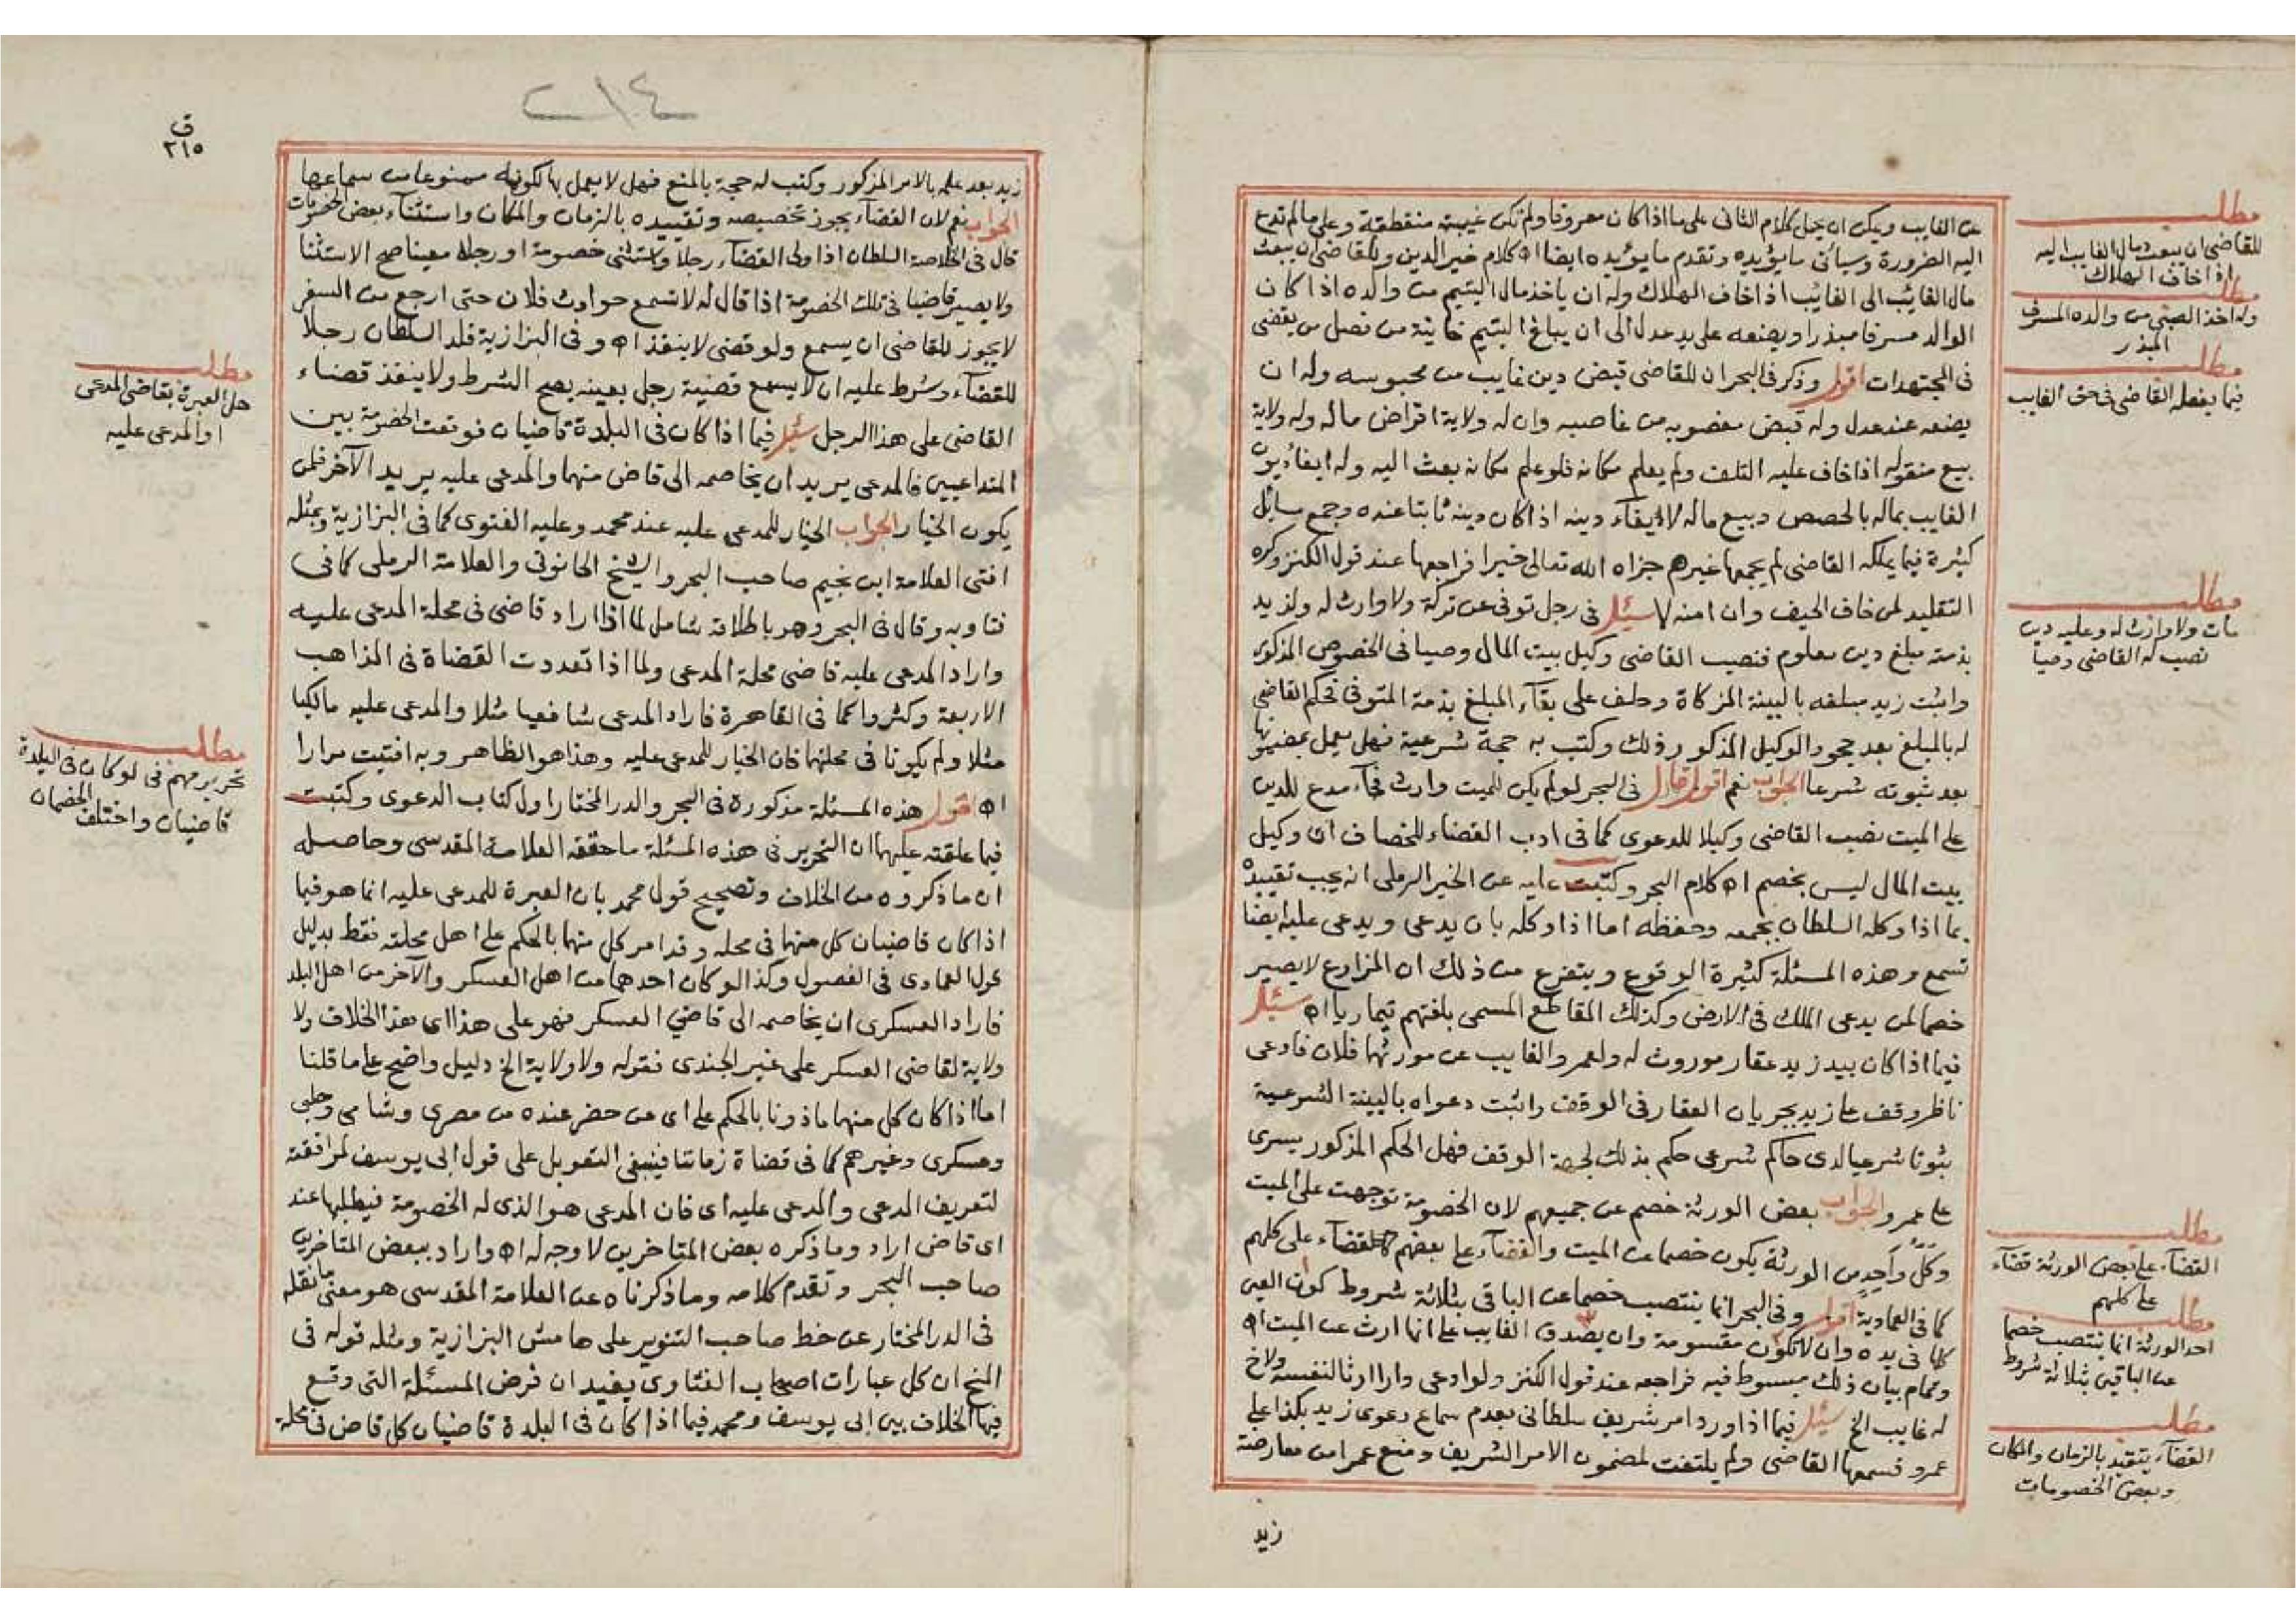 عن الغايب ويمكن ان يحمل كلام الثانى على ما اذا كان معروفا ولم تكن غيبته منقطعة وعلى ما لم تدع
اليه الضرورة وسيأتى ما يؤيده وتقدم ما يؤيده ايضا اه كلام خير الدين وللقاضى ان يبعث
مال الغائب الى الغائب اذا خاف الهلاك وله ان ياخذ مال اليتيم من والده اذا كان
الوالد مسرفا مبذرا ويضعه على يد عدل الى ان يبلغ اليتيم خانية من فصل من يقضى
فى المجتهدات اقول وذكر فى البحر ان للقاضى قبض دين غايب من محبوسه وله ان
يضعه عند عدل وله قبض مغصوبه من غاصبه وان له ولاية اقراض ماله وله ولاية
بيع منقوله اذا خاف عليه التلف ولم يعلم مكانه فلو علم مكانه بعث اليه وله ايفاء ديون
الغايب بماله بالحصص وبيع ماله لايفاء دينه اذا كان دينه ثابتا عنده وجمع سايل
كثيرة فيما يملكه القاضى لم يجمعها غيرهم جزاه الله تعالى خيرا فراجعها عند قول الكنز وكره
التقليد لمن خاف الحيف وان امنه لا سئل فى رجل توفى عن تركة ولا وارث له ولزيد
بذمته مبلغ دين معلوم فنصب القاضى وكيل بيت المال وصيا فى الخصوص المذكور
واثبت زيد مبلغه بالبينة المزكاة وحلف على بقآء المبلغ بذمة المتوفى فحكم القاضى
له بالمبلغ بعد جحود الوكيل المذكور ذلك وكتب به حجة شرعية فهل يعمل بمضمونها
بعد ثبوته شرعا الجواب نعم اقول قال فى البحر لو لم يكن للميت وارث فجآء مدع للدين
على الميت نصب القاضى وكيلا للدعوى كما فى ادب القضاء للخصاف اى وكيل
بيت المال ليس بخصم اه كلام البحر وكتبت عليه عن الخير الرملى انه يجب تقييده
بما اذا وكله السلطان بجمعه وحفظه اما اذا وكله بان يدعى ويدعى عليه ايضا
تسمع وهذه المسئلة كثيرة الوقوع ويتفرع من ذلك ان المزارع لا يصير
خصما لمن يدعى الملك فى الارض وكذلك المقاطع المسمى بلغتهم تيماريا اه سئل
فيما اذا كان بيد زيد عقار موروث له ولعمرو الغايب عن مورثهما فلان فادعى
ناظر وقف على زيد بجريان العقار فى الوقف واثبت دعواه بالبينة الشرعية
ثبوتا شرعيا لدى حاكم شرعى حكم بذلك لجهة الوقف فهل الحكم المذكور يسرى
على عمرو الجواب بعض الورثة خصم عن جميعهم لان الخصومة توجهت على الميت
وكل واحد من الورثة يكون خصما عن الميت والقضآء على بعضهم كالقضآء على كلهم
كما فى العمادية اقول وفى البحر انما ينتصب خصما عن الباقى بثلاثة شروط كون العين
كلها فى يده وان لا تكون مقسومة وان يصدق الغايب على انها ارث عن الميت اه
وتمام بيان ذلك مبسوط فيه فراجعه عند قول الكنز ولو ادعى دارا ارثا لنفسه ولاخ
له غايب الخ سئل فيما اذا ورد امر شريف سلطانى بعدم سماع دعوى زيد بكذا على
عمرو فسمعها القاضى ولم يلتفت لمضمون الامر الشريف ومنع عمرا من معارضة
زيد
مطلب
للقاضى ان يبعث مال الغايب اليه
اذا خاف الهلاك
مطلب
وله اخذ الصبى من والده المسرف
المبذر
مطلب
فيما يفعله القاضى فى حق الغايب
مطلب
مات ولا وارث له وعليه دين
نصب له القاضى وصيا
مطلب
القضآء على بعض الورثة قضآء
على كلهم
مطلب
احد الورثة انما ينتصب خصما
عن الباقين بثلاثة شروط
مطلب
القضآء يتقيد بالزمان والمكان
وبعض الخصومات
٢١٤
ق
٢١٥
زيد بعد علمه بالامر المذكور وكتب له حجة بالمنع فهل لا يعمل بها لكونه ممنوعا من سماعها
الجواب نعم لان القضآء يجوز تخصيصه وتقييده بالزمان والمكان واستثنآء بعض الخصومات
قال فى الخلاصة السلطان اذا ولى القضآء رجلا واستثنى خصومة او رجلا معينا صح الاستثنا
ولا يصير قاضيا فى تلك الخصومة اذا قال له لا تسمع حوادث فلان حتى ارجع من السفر
لا يجوز للقاضى ان يسمع ولو قضى لا ينفذ اه وفى البزازية قلد السلطان رجلا
للقضآء وشرط عليه ان لا يسمع قضية رجل بعينه يصح الشرط ولا ينفذ قضاء
القاضى على هذا الرجل سئل فيما اذا كان فى البلدة قاضيان فوقعت الخصومة بين
المتداعيين فالمدعى يريد ان يخاصمه الى قاض منهما والمدعى عليه يريد الآخر فلمن
يكون الخيار الجواب الخيار للمدعى عليه عند محمد وعليه الفتوى كما فى البزازية وبمثله
افتى العلامة ابن نجيم صاحب البحر والشيخ الحانوتى والعلامة الرملى كما فى
فتاويه وقال فى البحر وهو باطلاقه شامل لما اذا اراد قاضى فى محلة المدعى عليه
واراد المدعى عليه قاضى محلة المدعى ولما اذا تعددت القضاة فى المذاهب
الاربعة وكثروا كما فى القاهرة فاراد المدعى شافعيا مثلا والمدعى عليه مالكيا
مثلا ولم يكونا فى محلتهما فان الخيار للمدعى عليه وهذا هو الظاهر وبه افتيت مرارا
اه اقول هذه المسئلة مذكورة فى البحر والدر المختار اول كتاب الدعوى وكتبت
فيما علقته عليهما ان التحرير فى هذه المسئلة ما حققه العلامة المقدسى وحاصله
ان ما ذكروه من الخلاف وتصحيح قول محمد بان العبرة للمدعى عليه انما هو فيما
اذا كان قاضيان كل منهما فى محلة وقد امر كل منهما بالحكم على اهل محلته فقط بدليل
قول العمادى فى الفصول وكذا لو كان احدهما من اهل العسكر والآخر من اهل البلد
فاراد العسكرى ان يخاصمه الى قاضي العسكر فهو على هذا اى هذا الخلاف ولا
ولاية لقاضى العسكر على غير الجندى فقوله ولا ولاية الخ دليل واضح على ما قلنا
اما اذا كان كل منهما ماذونا بالحكم على اى من حضر عنده من مصرى وشامى وحلبى
وعسكرى وغيرهم كما فى قضاة زماننا فينبغى التعويل على قول ابى يوسف لموافقته
لتعريف المدعى والمدعى عليه اى فان المدعى هو الذى له الخصومة فيطلبها عند
اى قاض اراد وما ذكره بعض المتاخرين لا وجه له اه واراد ببعض المتاخرين
صاحب البحر وتقدم كلامه وما ذكرناه عن العلامة المقدسى هو معنى ما نقله
فى الدر المختار عن خط صاحب التنوير على هامش البزازية ومثله قوله فى
المنح ان كل عبارات اصحاب الفتاوى يفيد ان فرض المسئلة التى وقع
فيها الخلاف بين ابى يوسف ومحمد فيما اذا كان فى البلدة قاضيان كل قاض فى محلة
مطلب
هل العبرة بقاضى المدعى
او المدعى عليه
مطلب
تحرير مهم فى لو كان فى البلدة
قاضيان واختلف الخصمان